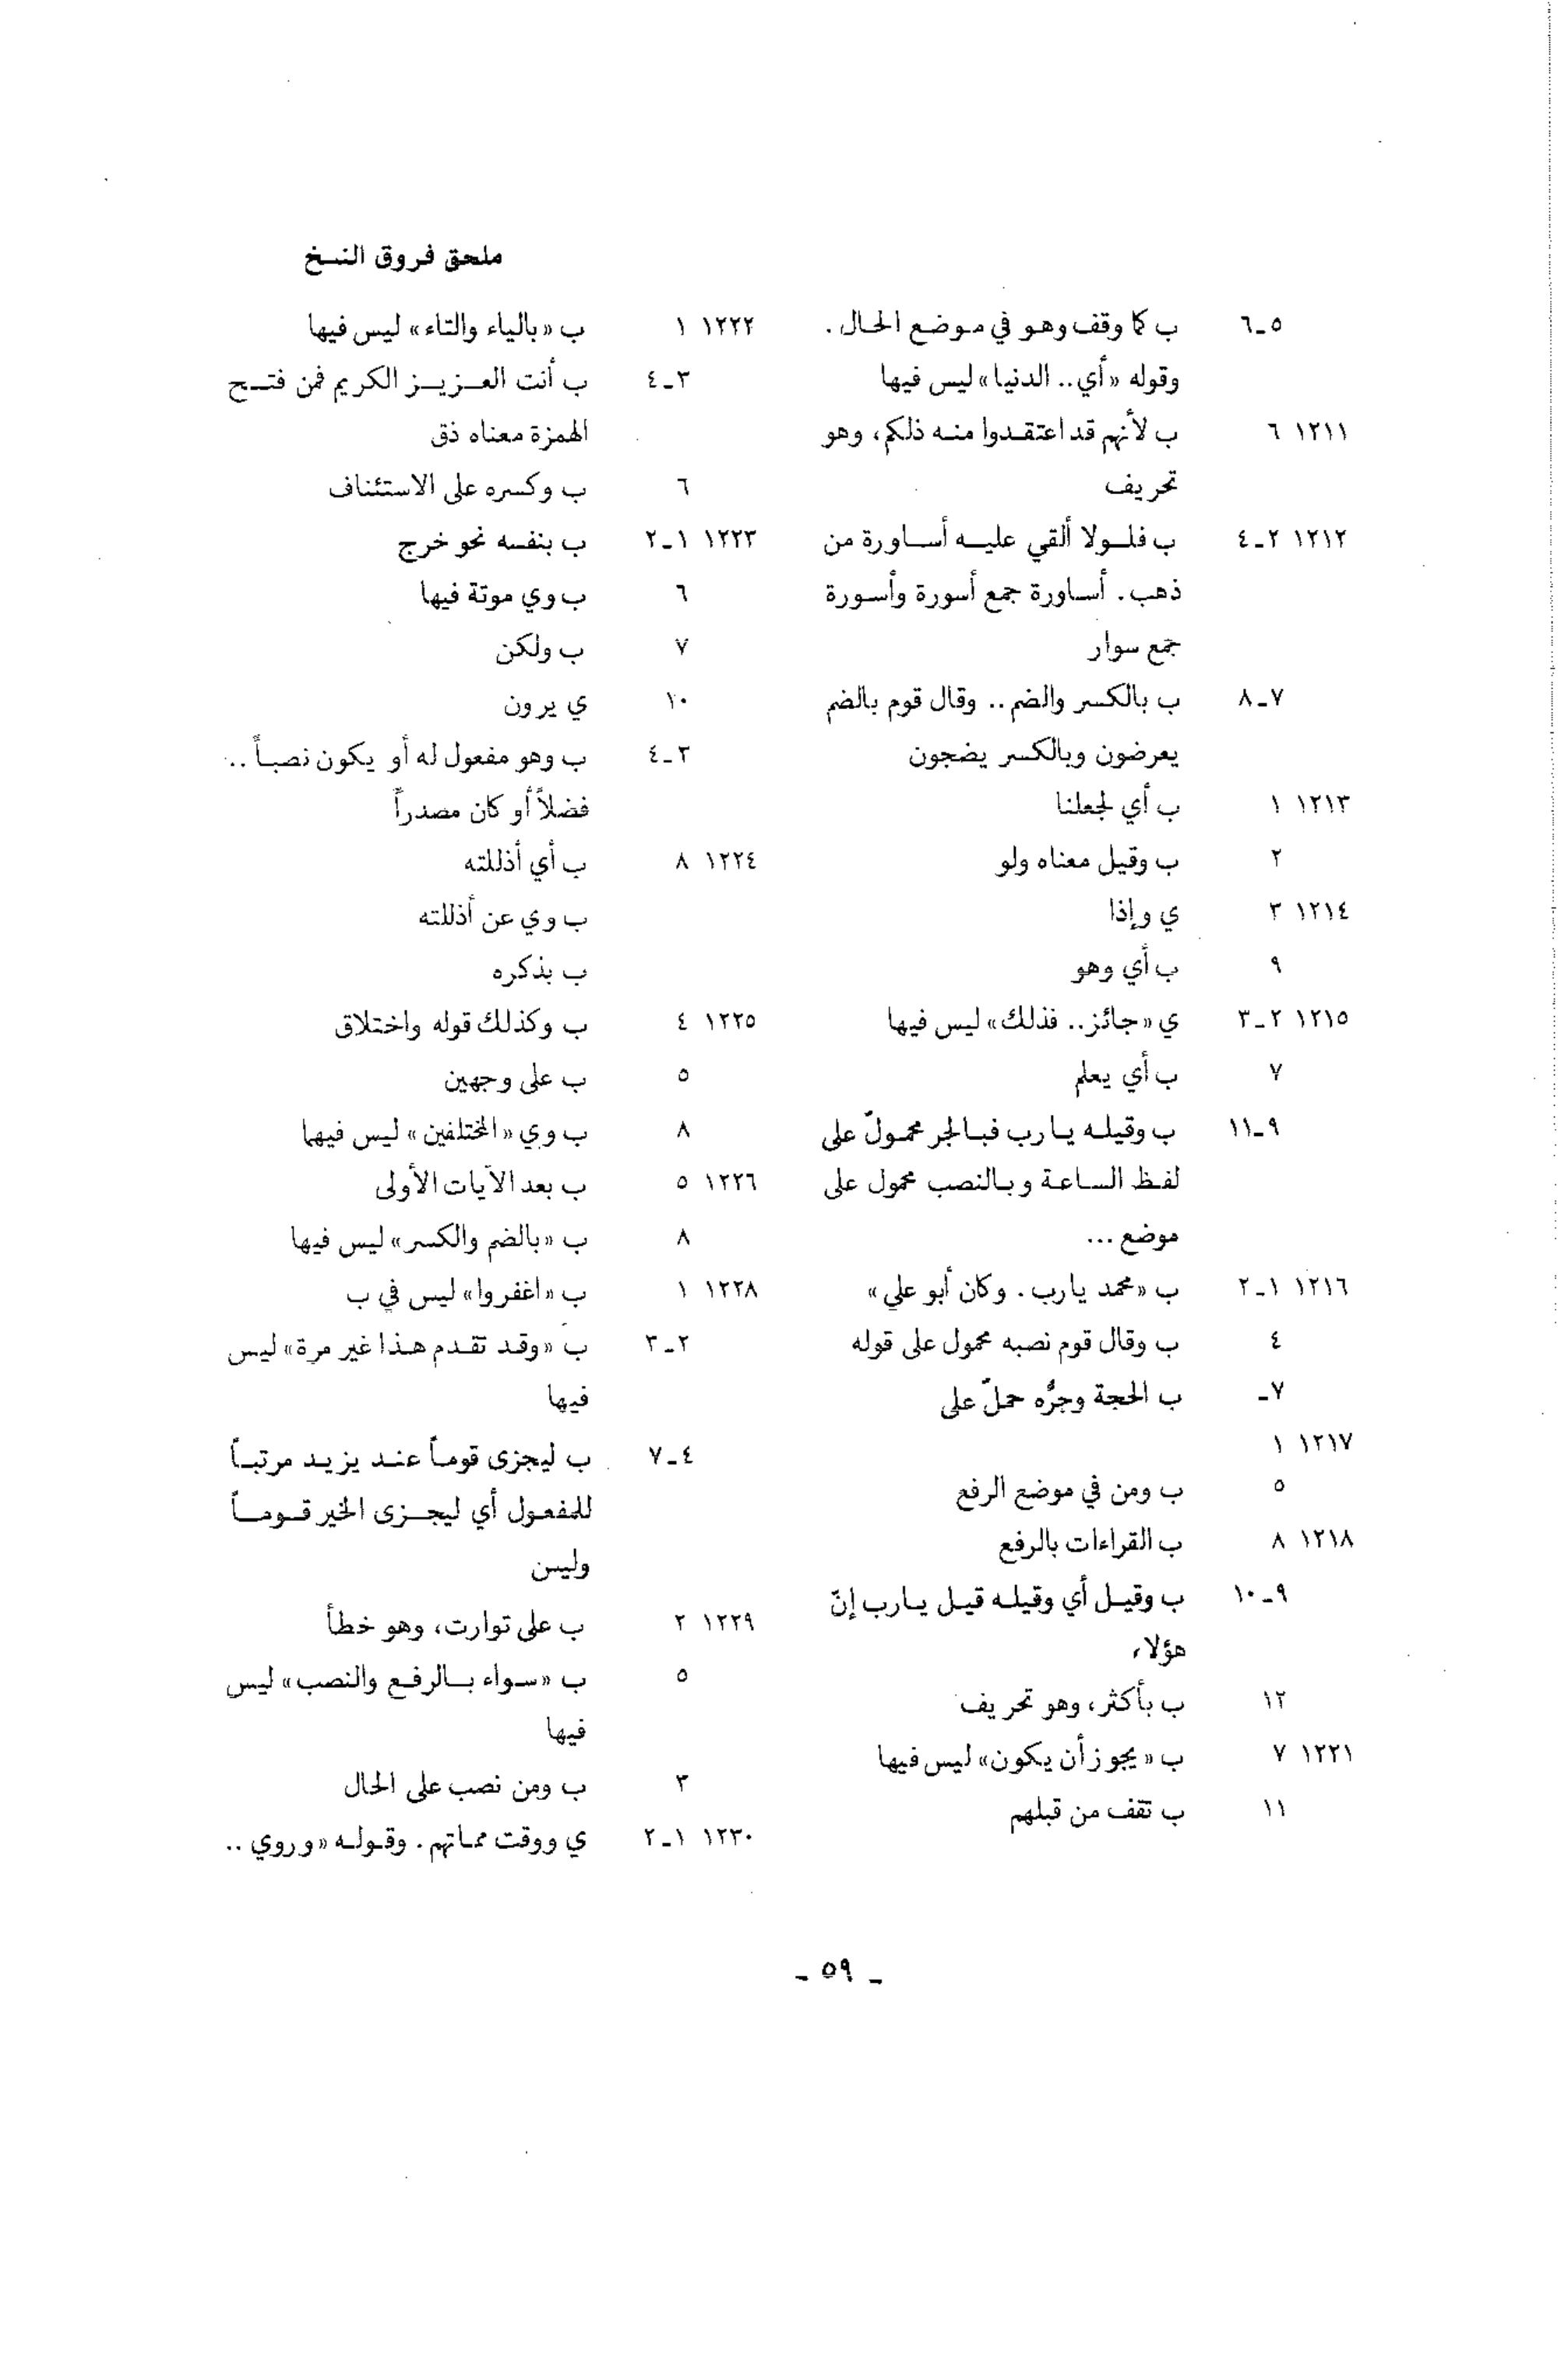 ملحق فروق النسخ
٥ـ٦ ب كما وقف وهو في موضع الحال .
وقوله «أي.. الدنيا» ليس فيها
١٢١١ ٦ ب لأنهم قد اعتقدوا منه ذلكم، وهو
تحريف
١٢١٢ ٢ـ٤ ب فلولا ألقي عليه أساورة من
ذهب. أساورة جمع أسورة وأسورة
جمع سوار
٧ـ٨ ب بالكسر والضم.. وقال قوم بالضم
يعرضون وبالكسر يضجون
١٢١٣ ١ ب أي لجعلنا
٢ ب وقيل معناه ولو
١٢١٤ ٣ ي وإذا
٩ ب أي وهو
١٢١٥ ٢ـ٣ ي «جائز.. فذلك» ليس فيها
٧ ب أي يعلم
٩ـ١١ ب وقيله يارب فبالجر محمولّ على
لفظ الساعة وبالنصب محمول على
موضع ...
١٢١٦ ١ـ٢ ب «محمد يارب. وكان أبو علي»
٤ ب وقال قوم نصبه محمول على قوله
٧ـ ب الحجة وجرُّه حملّ على
١٢١٧ ١
٥ ب ومن في موضع الرفع
١٢١٨ ٨ ب القراءات بالرفع
٩ـ١٠ ب وقيل أي وقيله قيل يارب إنّ
هؤلاء
١٢ ب بأكثر، وهو تحريف
١٢٢١ ٧ ب «يجوز أن يكون» ليس فيها
١١ ب تقف من قبلهم
١٢٢٢ ١ ب «بالياء والتاء» ليس فيها
٣ـ٤ ب أنت العزيز الكريم فمن فتح
الهمزة معناه ذق
٦ ب وكسره على الاستئناف
١٢٢٣ ١ـ٢ ب بنفسه نحو خرج
٦ ب وي موتة فيها
٧ ب ولكن
١٠ ي يرون
٣ـ٤ ب وهو مفعول له أو يكون نصباً ..
فضلاً أو كان مصدراً
١٢٢٤ ٨ ب أي أذللته
ب وي عن أذللته
ب بذكره
١٢٢٥ ٤ ب وكذلك قوله واختلاق
٥ ب على وجهين
٨ ب وي «المختلفين» ليس فيهما
١٢٢٦ ٥ ب بعد الآيات الأولى
٨ ب «بالضم والكسر» ليس فيها
١٢٢٨ ١ ب «اغفروا» ليس في ب
٢ـ٣ ب «وقد تقدم هذا غير مرة» ليس
فيها
٤ـ٧ ب ليجزى قوماً عند يزيد مرتباً
للمفعول أي ليجزى الخير قوماً
وليس
١٢٢٩ ٢ ب على توارت، وهو خطأ
٥ ب «سواء بالرفع والنصب» ليس
فيها
٣ ب ومن نصب على الحال
١٢٣٠ ١ـ٢ ي ووقت مماتهم. وقوله «وروي ..
ـ ٥٩ ـ